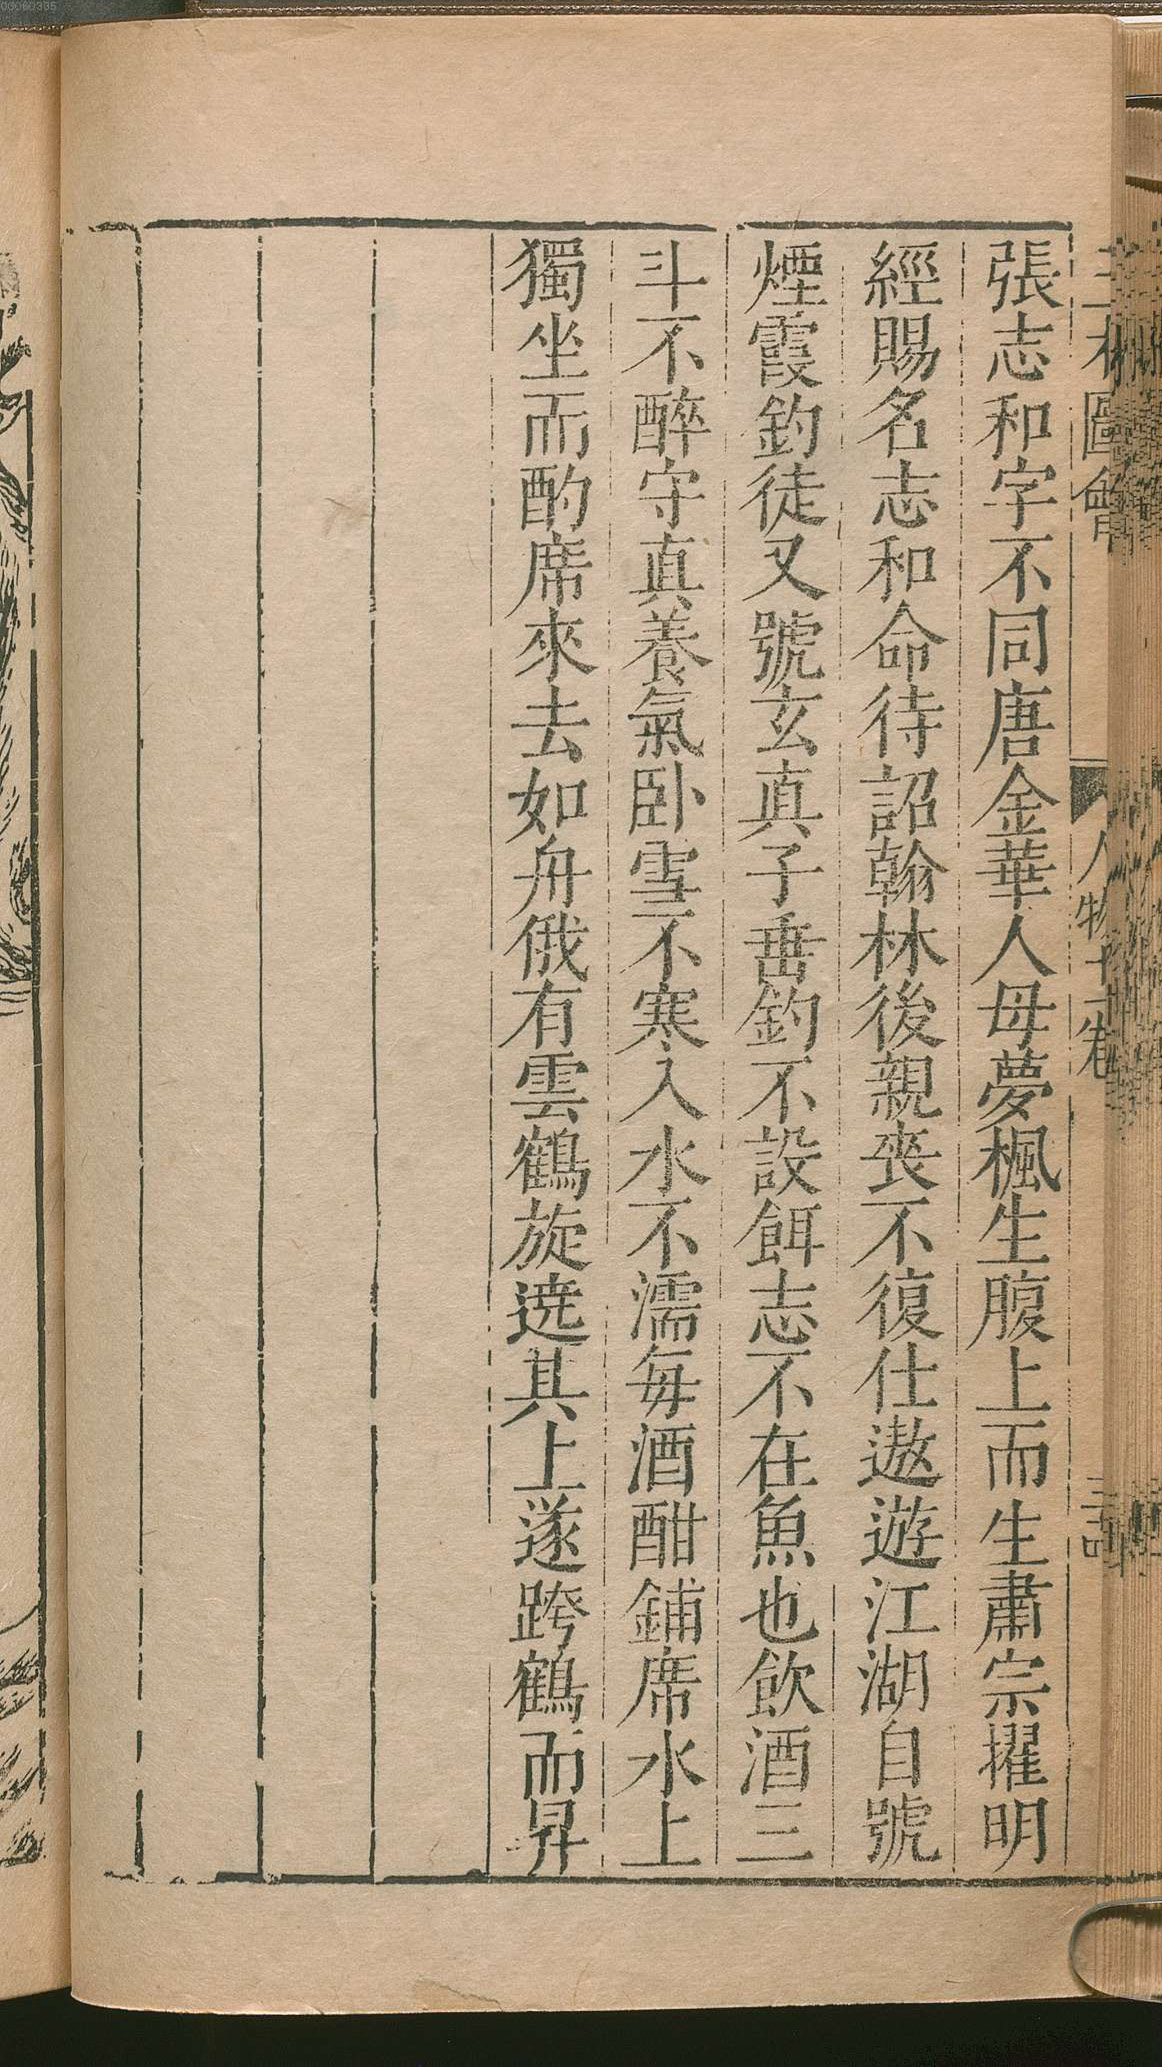 張志和字不同唐金華人母夢楓生腹上而生肅宗擢明
經賜名志和命待詔翰林後親丧不復仕遨遊江湖自號
煙霞釣徒又號玄真子垂釣不設餌志不在魚也飲酒三
斗不醉守真養氣卧雪不寒入水不濡每酒酣鋪席水上
獨坐而酌席來去如舟俄有雲鶴旋遶其上遂跨鶴而昇
圖會
人物十
00060335